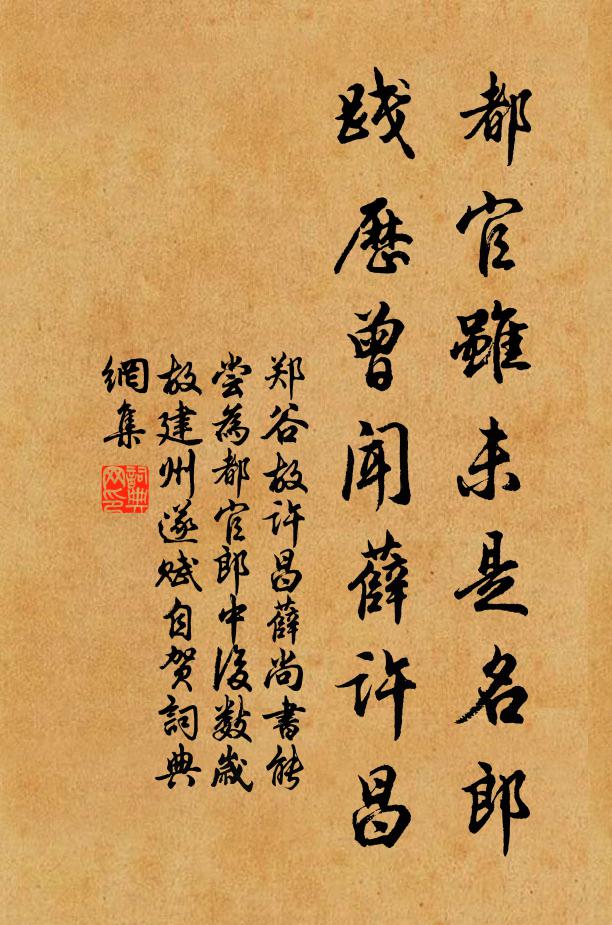 都官雖未是名郎
踐歷曾聞薛許昌
郑谷故许昌薛尚書能
尝為都官郎中後数歲
故建州遂赋自贺詞典
網集
詞典
网印